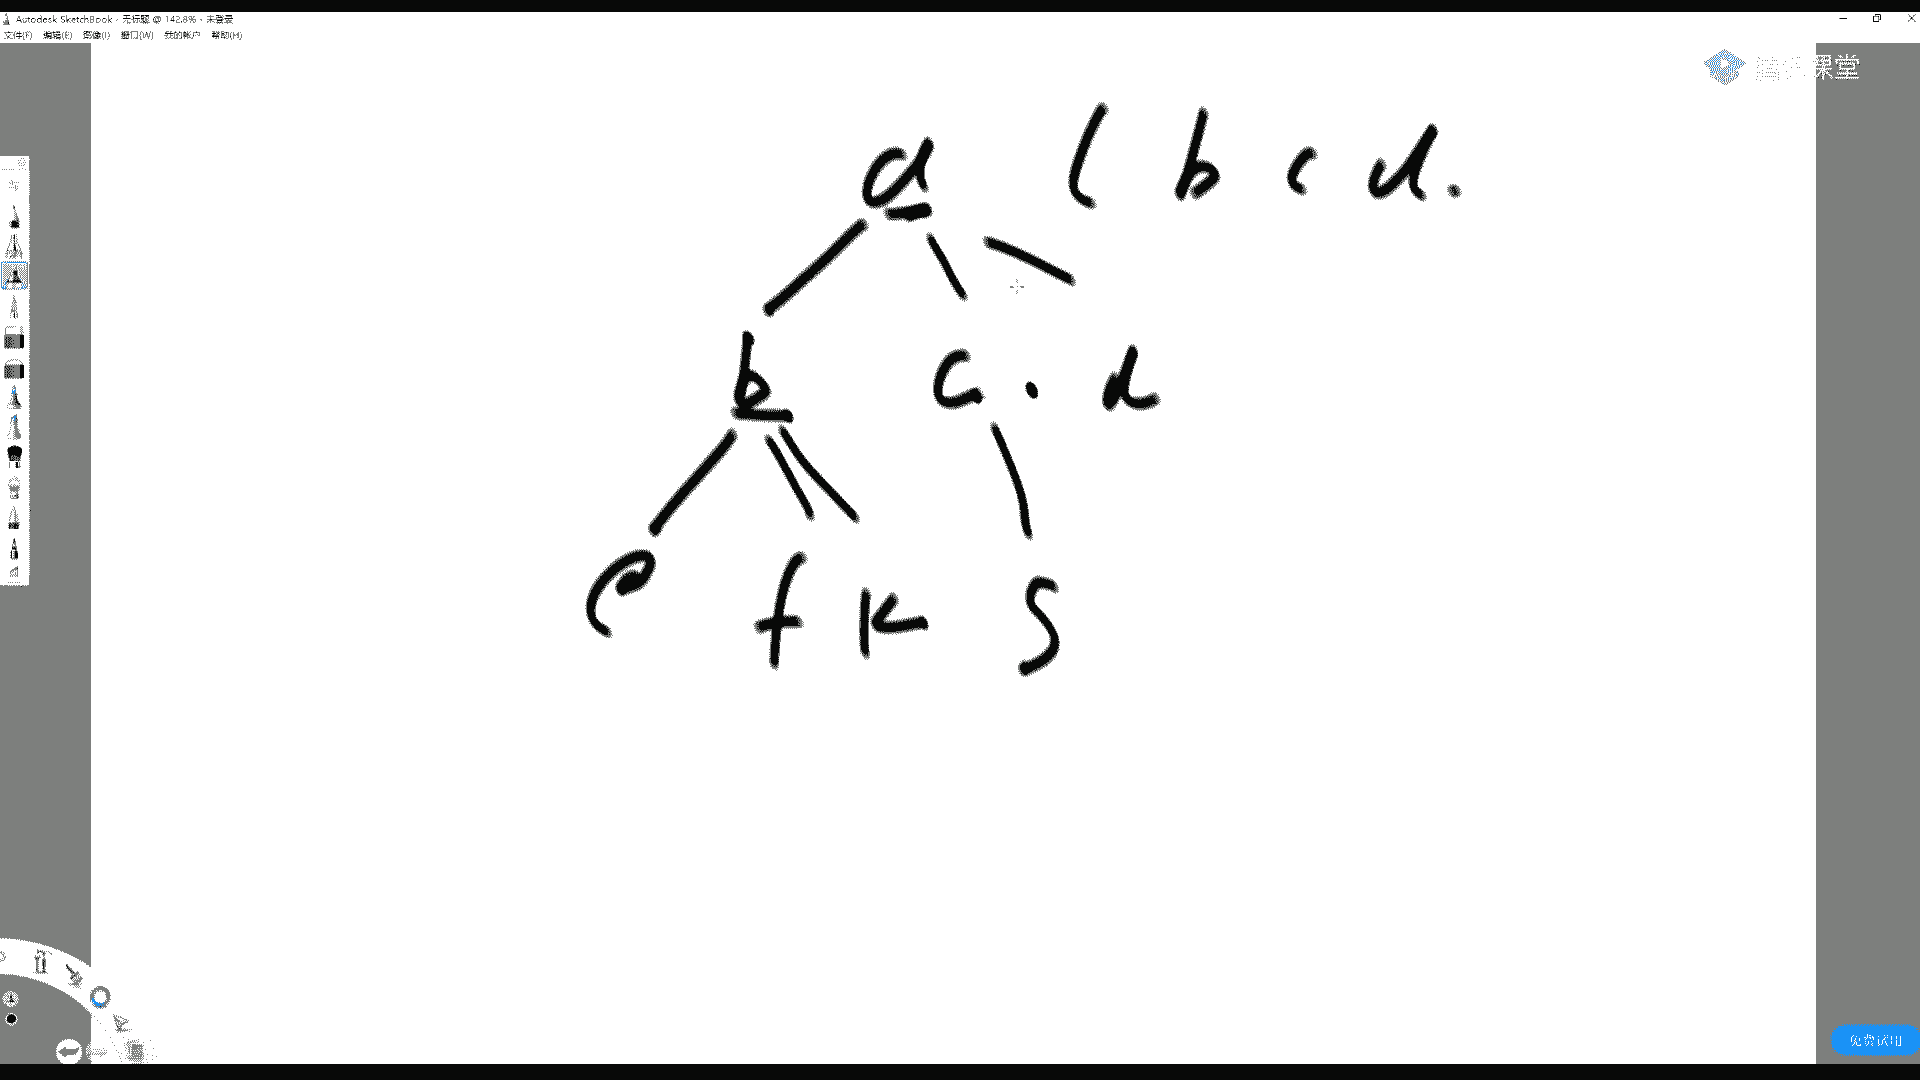 Autodesk SketchBook - 无标题 @ 142.8% - 未登录
文件(F) 编辑(E) 图像(I) 窗口(W) 我的帐户 帮助(H)
腾讯课堂
a ( b c d .
b c . d
e f k g
免费试用